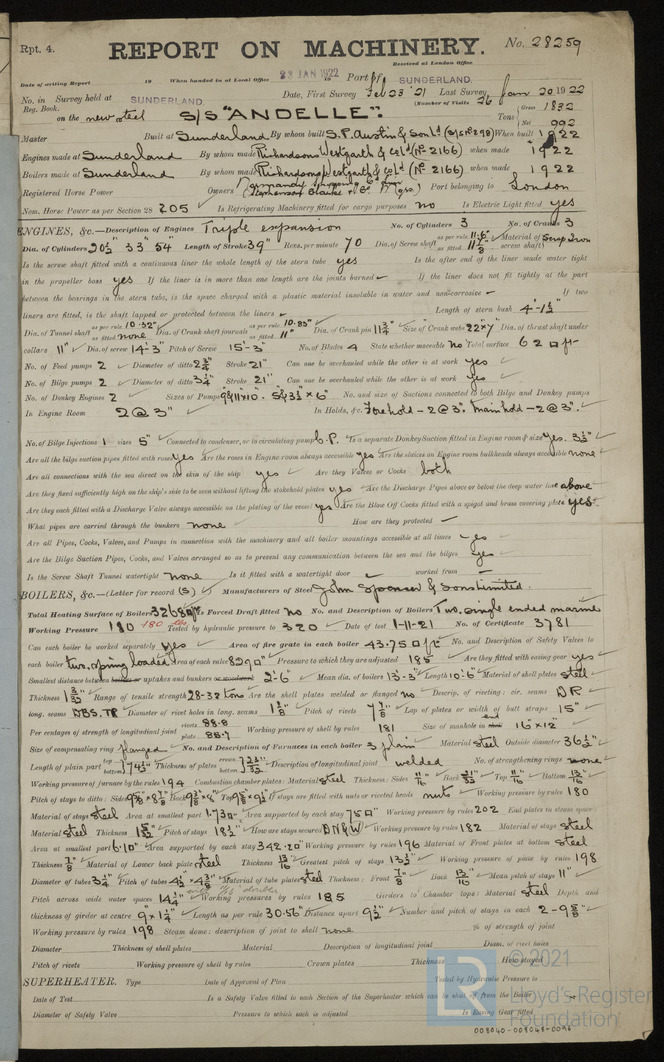 Rpt. 4.
REPORT ON MACHINERY. No. 28259
Received at London Office
Date of writing Report 19 When handed in at Local Office 23 JAN 1922 Port of SUNDERLAND.
No. in Survey held at SUNDERLAND Date, First Survey Feb 23 '21 Last Survey Jan 20 1922
Reg. Book. (Number of Visits 26
on the new steel S/S "ANDELLE". Tons Gross 1832 Net 992
Master Built at Sunderland By whom built S.P. Austin & Son Ld (S/S No 298) When built 1922
Engines made at Sunderland By whom made Richardsons Westgarth & Co Ld (No 2166) when made 1922
Boilers made at Sunderland By whom made Richardsons Westgarth & Co Ld (No 2166) when made 1922
Registered Horse Power Owners Port belonging to London
Nom. Horse Power as per Section 28 205 Is Refrigerating Machinery fitted for cargo purposes no Is Electric Light fitted yes
ENGINES, &c.—Description of Engines Triple expansion No. of Cylinders 3 No. of Cranks 3
Dia. of Cylinders 20½" 33" 54" Length of Stroke 39" Revs. per minute 70 Dia. of Screw shaft as per rule 11.6" as fitted Material of screw shaft Scrap Iron
Is the screw shaft fitted with a continuous liner the whole length of the stern tube yes Is the after end of the liner made water tight
in the propeller boss yes If the liner is in more than one length are the joints burned If the liner does not fit tightly at the part
between the bearings in the stern tube, is the space charged with a plastic material insoluble in water and non-corrosive If two
liners are fitted, is the shaft lapped or protected between the liners Length of stern bush 4'-1½"
Dia. of Tunnel shaft as per rule 10.32" as fitted none Dia. of Crank shaft journals as per rule 10.83" as fitted 11" Dia. of Crank pin 11¾" Size of Crank webs 22"x7" Dia. of thrust shaft under
collars 11" Dia. of screw 14'-3" Pitch of Screw 15'-3" No. of Blades 4 State whether moveable no Total surface 62 □ ft
No. of Feed pumps 2 Diameter of ditto 2¾" Stroke 21" Can one be overhauled while the other is at work yes
No. of Bilge pumps 2 Diameter of ditto 3¼" Stroke 21" Can one be overhauled while the other is at work yes
No. of Donkey Engines 2 Sizes of Pumps No. and size of Suctions connected to both Bilge and Donkey pumps
In Engine Room 2 @ 3" In Holds, &c. Fore hold - 2 @ 3". Main hold - 2 @ 3".
No. of Bilge Injections 1 sizes 5" Connected to condenser, or to circulating pump C.P. Is a separate Donkey Suction fitted in Engine room & size yes. 3½"
Are all the bilge suction pipes fitted with roses yes Are the roses in Engine room always accessible yes Are the sluices on Engine room bulkheads always accessible none
Are all connections with the sea direct on the skin of the ship yes Are they Valves or Cocks both
Are they fixed sufficiently high on the ship's side to be seen without lifting the stokehold plates yes Are the Discharge Pipes above or below the deep water line above
Are they each fitted with a Discharge Valve always accessible on the plating of the vessel yes Are the Blow Off Cocks fitted with a spigot and brass covering plate yes
What pipes are carried through the bunkers none How are they protected
Are all Pipes, Cocks, Valves, and Pumps in connection with the machinery and all boiler mountings accessible at all times yes
Are the Bilge Suction Pipes, Cocks, and Valves arranged so as to prevent any communication between the sea and the bilges yes
Is the Screw Shaft Tunnel watertight none Is it fitted with a watertight door worked from
BOILERS, &c.—(Letter for record (S)) Manufacturers of Steel John Spencer & Sons Limited.
Total Heating Surface of Boilers 3268 □ ft Is Forced Draft fitted no No. and Description of Boilers Two, single ended marine
Working Pressure 180 180 lbs Tested by hydraulic pressure to 320 Date of test 1-11-21 No. of Certificate 3781
Can each boiler be worked separately yes Area of fire grate in each boiler 43.75 □ ft No. and Description of Safety Valves to
each boiler two, spring loaded Area of each valve 8.29 □" Pressure to which they are adjusted 185 Are they fitted with easing gear yes
Smallest distance between boilers or uptakes and bunkers or woodwork 2'-6" Mean dia. of boilers 13'-3" Length 10'-6" Material of shell plates steel
Thickness Range of tensile strength 28-32 tons Are the shell plates welded or flanged no Descrip. of riveting: cir. seams D R
long. seams DBS.TR Diameter of rivet holes in long. seams 1⅛" Pitch of rivets 7⅞" Lap of plates or width of butt straps 15"
Per centages of strength of longitudinal joint rivets 88.8 plate 85.7 Working pressure of shell by rules 181 Size of manhole in end 16"x12"
Size of compensating ring flanged No. and Description of Furnaces in each boiler 3 plain Material steel Outside diameter 36½"
Length of plain part top bottom 74½" Thickness of plates crown bottom Description of longitudinal joint welded No. of strengthening rings none
Working pressure of furnace by the rules 194 Combustion chamber plates: Material steel Thickness: Sides 11/16" Back Top 11/16" Bottom 13/16"
Pitch of stays to ditto: Sides Back Top If stays are fitted with nuts or riveted heads nuts Working pressure by rules 180
Material of stays steel Area at smallest part 1.73 □" Area supported by each stay 75 □" Working pressure by rules 202 End plates in steam space
Material steel Thickness Pitch of stays 18½" How are stays secured DN&W Working pressure by rules 182 Material of stays steel
Area at smallest part 6.10 □" Area supported by each stay 342.20 Working pressure by rules 196 Material of Front plates at bottom steel
Thickness ⅞" Material of Lower back plate steel Thickness 13/16" Greatest pitch of stays 13½" Working pressure of plate by rules 198
Diameter of tubes 3¼" Pitch of tubes 4½"x4⅜" Material of tube plates steel Thickness: Front ⅞" Back 13/16" Mean pitch of stays 11"
Pitch across wide water spaces 14¼" Working pressures by rules 185 Girders to Chamber tops: Material steel Depth and
thickness of girder at centre 9"x1¼" Length as per rule 30.56" Distance apart 9½" Number and pitch of stays in each 2-9⅝"
Working pressure by rules 198 Steam dome: description of joint to shell none % of strength of joint
Diameter Thickness of shell plates Material Description of longitudinal joint Diam. of rivet holes
Pitch of rivets Working pressure of shell by rules Crown plates Thickness How stayed
SUPERHEATER. Type Date of Approval of Plan Tested by Hydraulic Pressure to
Date of Test Is a Safety Valve fitted to each Section of the Superheater which can be shut off from the Boiler
Diameter of Safety Valve Pressure to which each is adjusted Is Easing Gear fitted
© 2021
Lloyd's Register
Foundation
008040-008048-0096